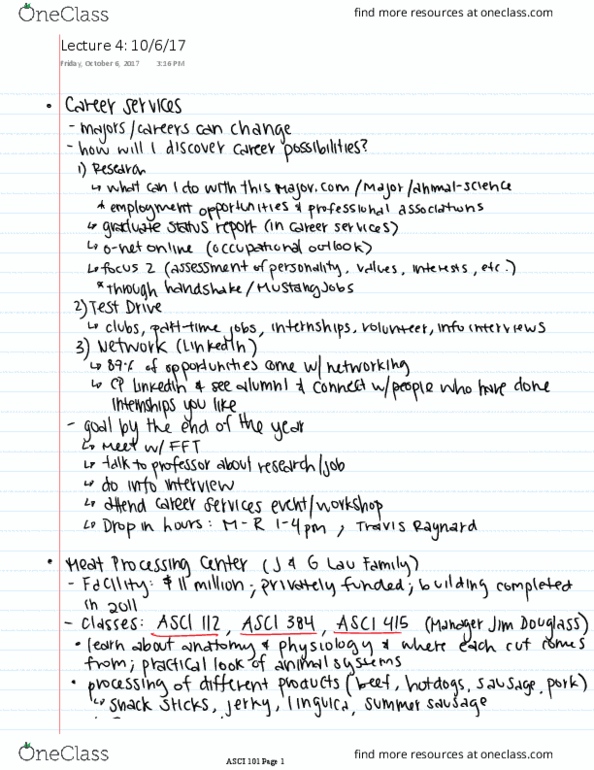 OneClass
find more resources at oneclass.com
Lecture 4: 10/6/17
Friday, October 6, 2017 3:16 PM
• Career services
- majors/careers can change
- how will I discover career possibilities?
1) Research
↳ what can I do with this major.com/major/animal-science
* employment opportunities & professional associations
↳ graduate status report (in career services)
↳ o-net online (occupational outlook)
↳ focus 2 (assessment of personality, values, interests, etc.)
* through handshake/MustangJobs
2) Test Drive
↳ clubs, part-time jobs, internships, volunteer, info interviews
3) Network (LinkedIn)
↳ 89% of opportunities come w/ networking
↳ CP LinkedIn & see alumni & connect w/people who have done
internships you like
- goal by the end of the year
↳ Meet w/ FFT
↳ talk to professor about research/job
↳ do info interview
↳ attend career services event/workshop
↳ Drop in hours: M-R 1-4pm, Travis Raynard
• Meat Processing Center (J & G Lau Family)
- Facility: $11 million; privately funded; building completed
in 2011
- Classes: ASCI 112, ASCI 384, ASCI 415 (Manager Jim Douglass)
• learn about anatomy & physiology & where each cut comes
from; practical look of animal systems
• processing of different products (beef, hotdogs, sausage, pork)
↳ snack sticks, jerky, linguica, summer sausage
OneClass
ASCI 101 Page 1
find more resources at oneclass.com